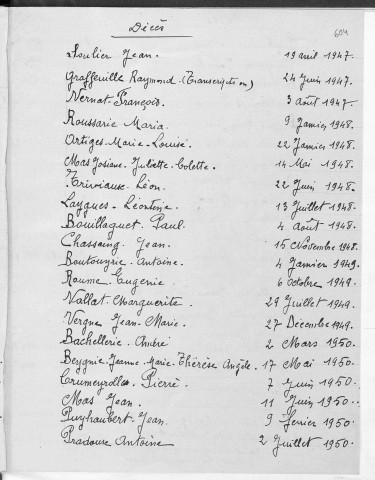 Décès
604
Soulier Jean. 19 avril 1947.
Graffeuille Raymond. (Transcription) 24 Juin 1947.
Vernat-François. 3 Août 1947.
Roussarie Maria. 9 Janvier 1948.
Ortiges-Marie-Louise. 22 Janvier 1948.
Mas Josiane-Juliette-Colette. 14 Mai 1948.
Trivioux-Léon. 22 Juin 1948.
Laygues-Léontine 13 Juillet 1948.
Bouillaguet-Paul. 4 Août 1948.
Chassaing-Jean. 15 Novembre 1948.
Boutouyrie-Antoine. 4 Janvier 1949.
Roume Eugénie. 6 octobre 1949.
Vallat-Marguerite. 29 Juillet 1949.
Vergne Jean-Marie. 27 Décembre 1949.
Bachellerie-André 2 Mars 1950.
Beygnie-Jeanne-Marie-Thérèse Angèle. 17 Mai 1950.
Crumeyrolles-Pierre. 7 Juin 1950.
Mas Jean. 11 Juin 1950.
Puyhaubert-Jean. 9 Février 1950.
Pradoure Antoine 2 Juillet 1950.